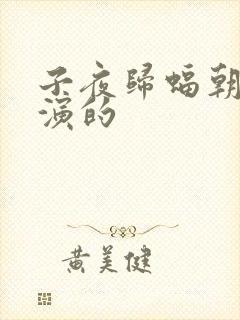 子夜归蝠朝
演的
黄美健